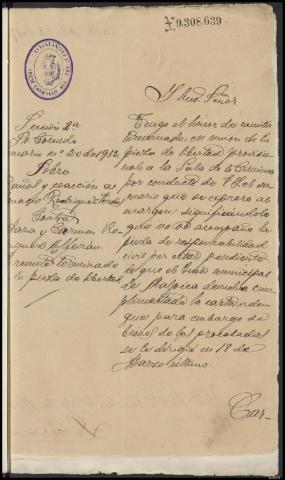 N 9.308.639
Iltmo Señor
Tengo el honor de remitir
terminado, en unión de la
pieza de libertad provisio-
nal a la Sala de lo Criminal
por conducto de V.S. el su-
mario que se expresa al
margen, significándole
que no se acompaña la
pieza de responsabilidad
civil por estar pendiente
de que el Juez municipal
de Malpica devuelva cum-
plimentada la carta-orden
que para embargo de
bienes de los procesados
se le dirigió en 18 de
Marzo último.
Car-
Sección 2ª
Sumario nº 20 de 1932
Sobre
daños y coacción a
Rodríguez
Contra
y Carmen
Beltrán
remite terminado
la pieza de libertad